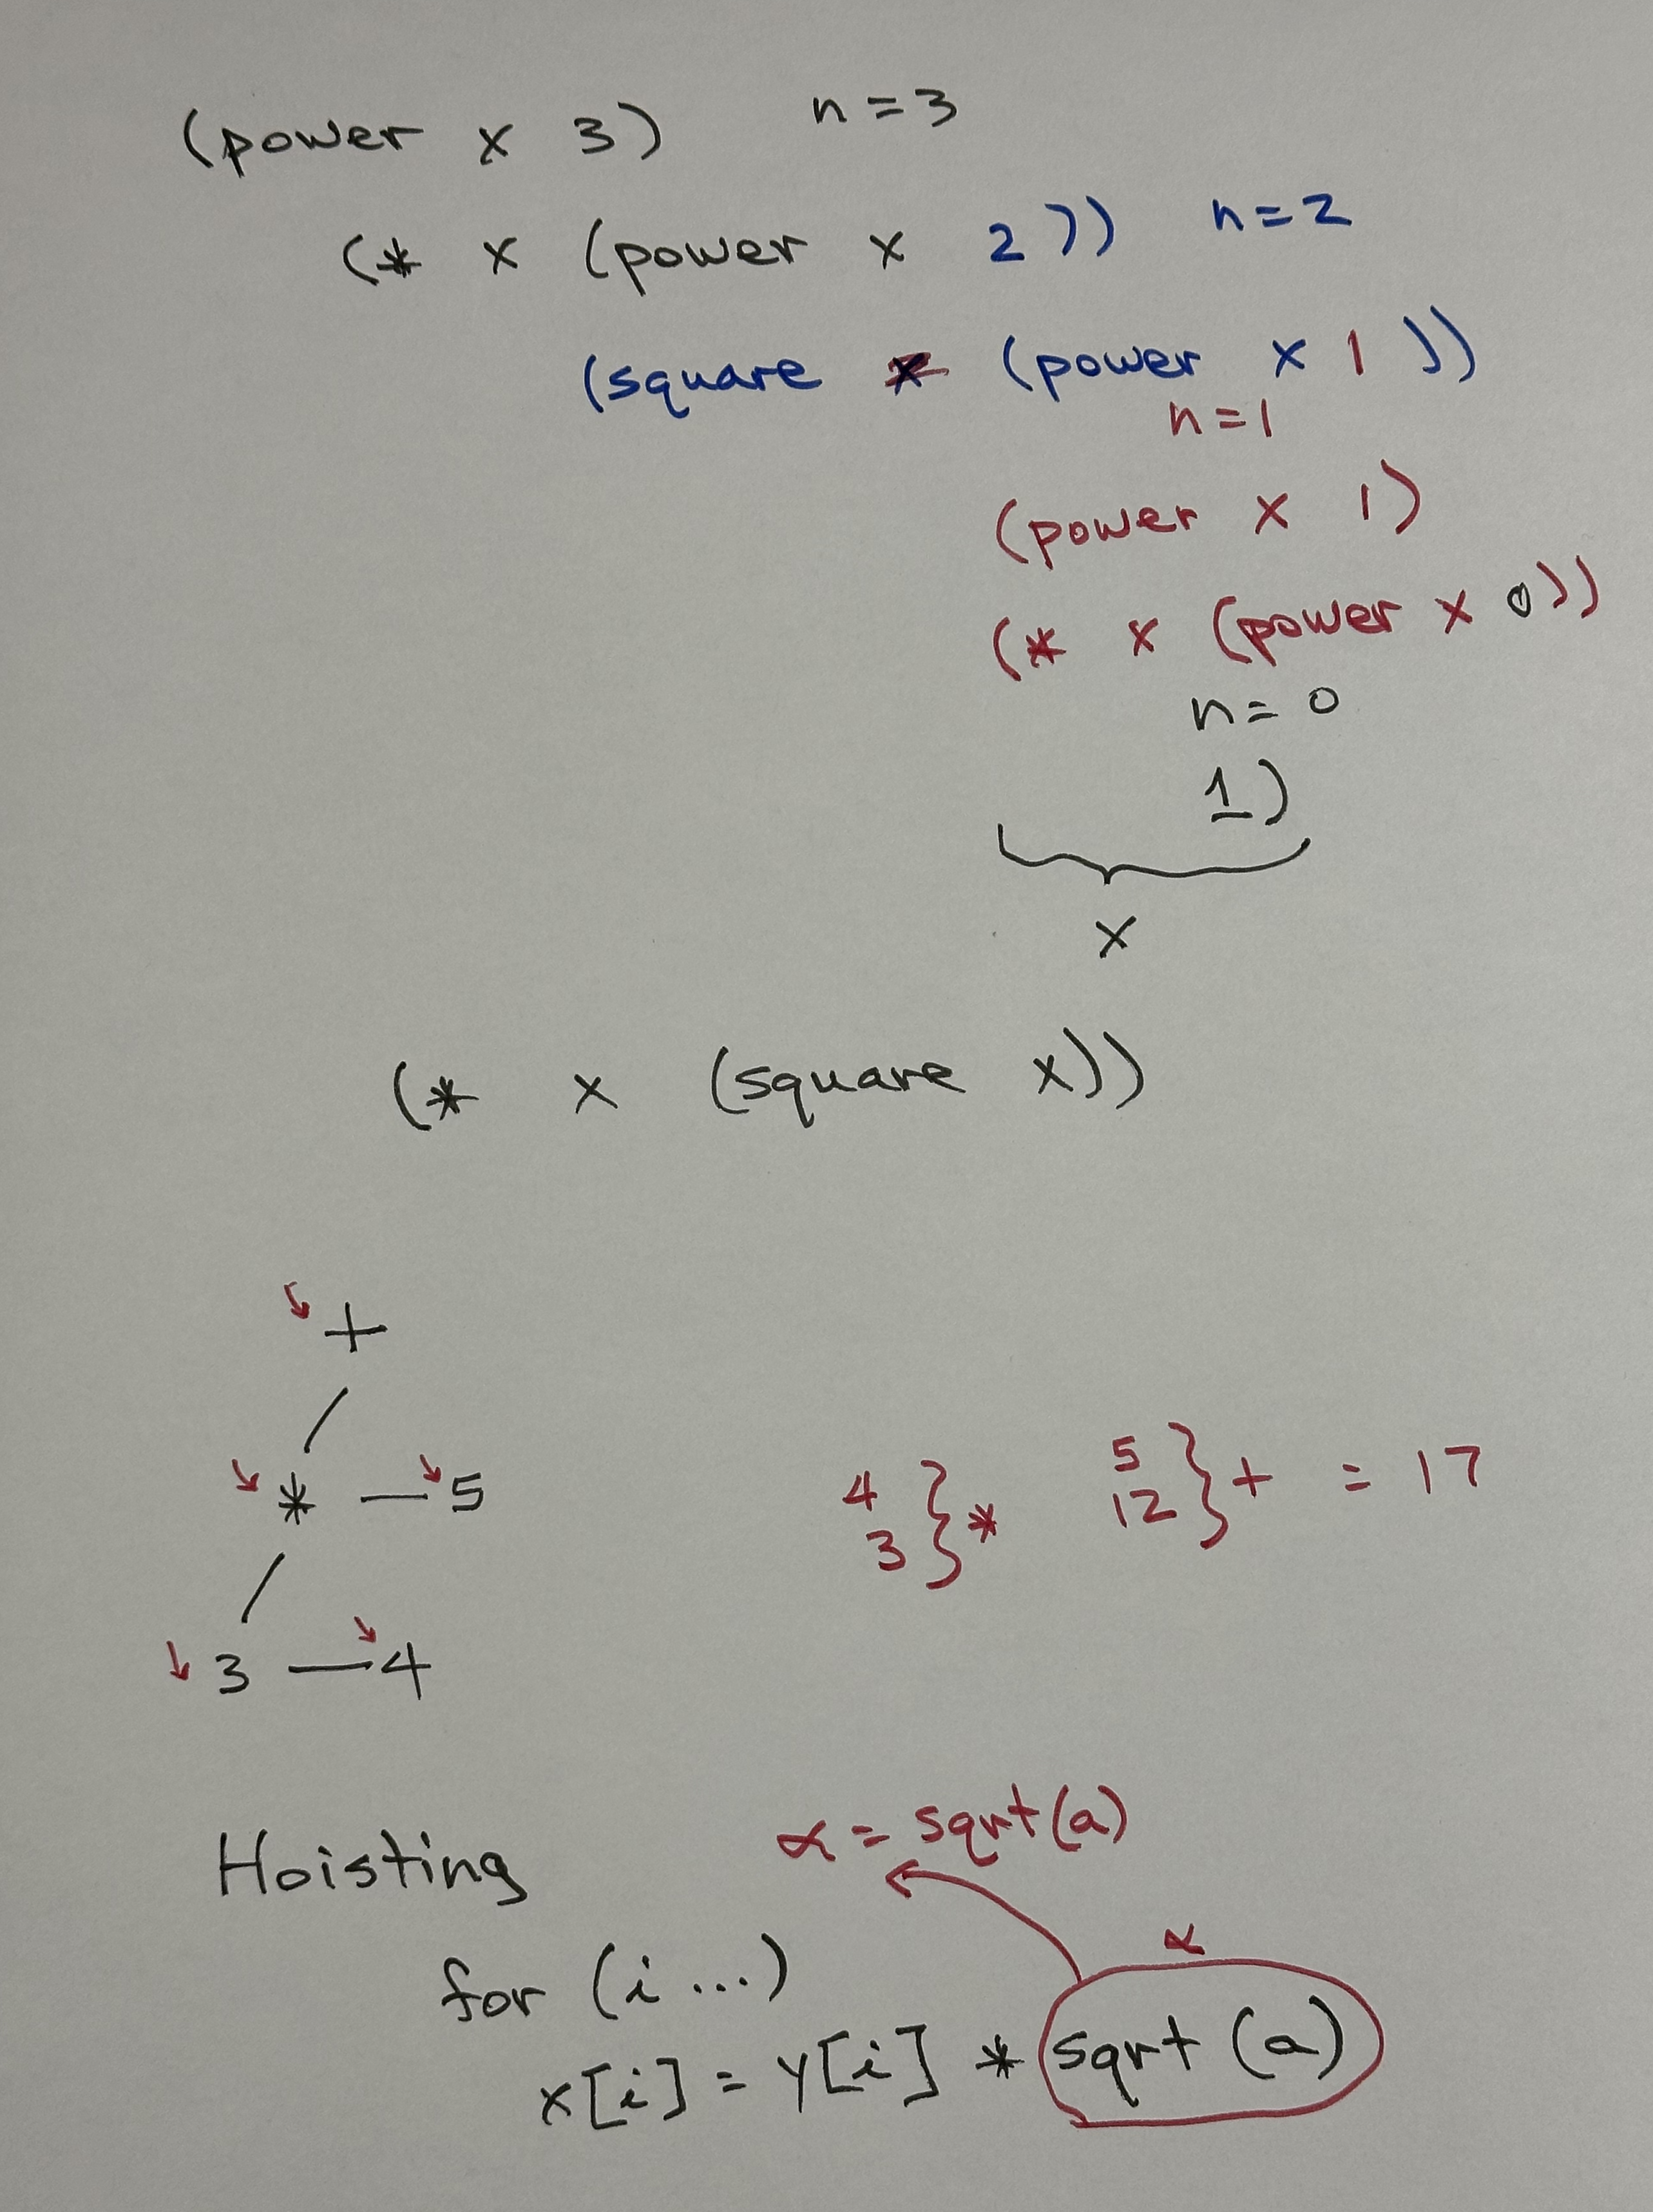 (power x 3) n = 3
(* x (power x 2)) n = 2
(square (power x 1))
n = 1
(power x 1)
(* x (power x 0))
n = 0
1)
x
(* x (square x))
+
* 5
3 4
4
3 } *
5
12 } + = 17
Hoisting
α = sqrt(a)
for (i ...)
α
x[i] = y[i] * sqrt(a)